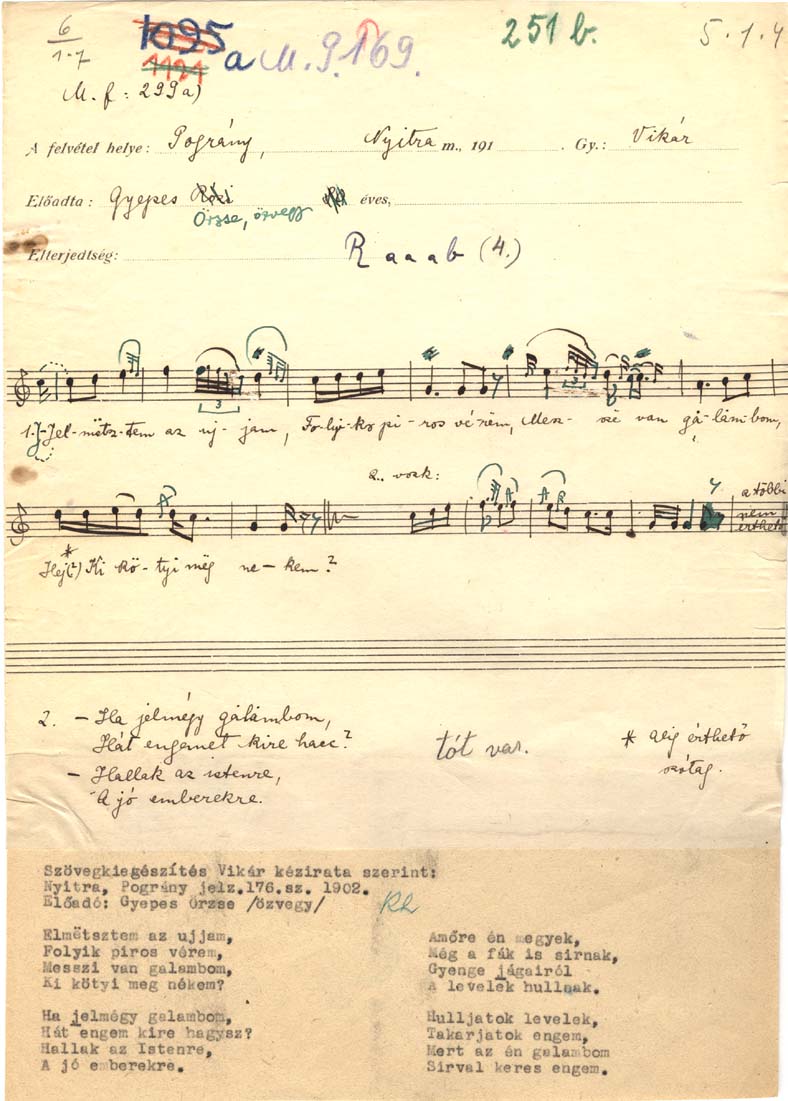 6/1-7 1095 a M. 9.169. 251 b. 5.1.4
1121
M. f: 299a)
A felvétel helye: Pográny, Nyitra m., 191 . Gy.: Vikár
Előadta: Gyepes éves,
Örzse, özvegy
Elterjedtség: R a a a b (4.)
3 3
1. Jel-mëtsz-tem az uj-jam, Fo-lyik pi-ros vé-rëm, Mes-szë van gå-låm-bom,
2. vszak: a többi
nem
érthető
* Hej(?) Ki kö-tyi mëg ne-kem?
2. - Ha jelmégy gålåmbom,
Hát engemet kire hacc?
- Hallak az istenre,
A jó emberekre.
tót var.
* alig érthető
szótag.
Szövegkiegészítés Vikár kézirata szerint:
Nyitra, Pográny jelz.176.sz. 1902.
Előadó: Gyepes Örzse /özvegy/
Elmëtsztem az ujjam,
Folyik piros vérem,
Messzi van galambom,
Ki kötyi meg nékem?
Ha jelmégy galambom,
Hát engem kire hagysz?
Hallak az Istenre,
A jó emberekre.
Amőre én megyek,
Még a fák is sirnak,
Gyenge jágairól
A levelek hullnak.
Hulljatok levelek,
Takarjatok engem,
Mert az én galambom
Sirval keres engem.